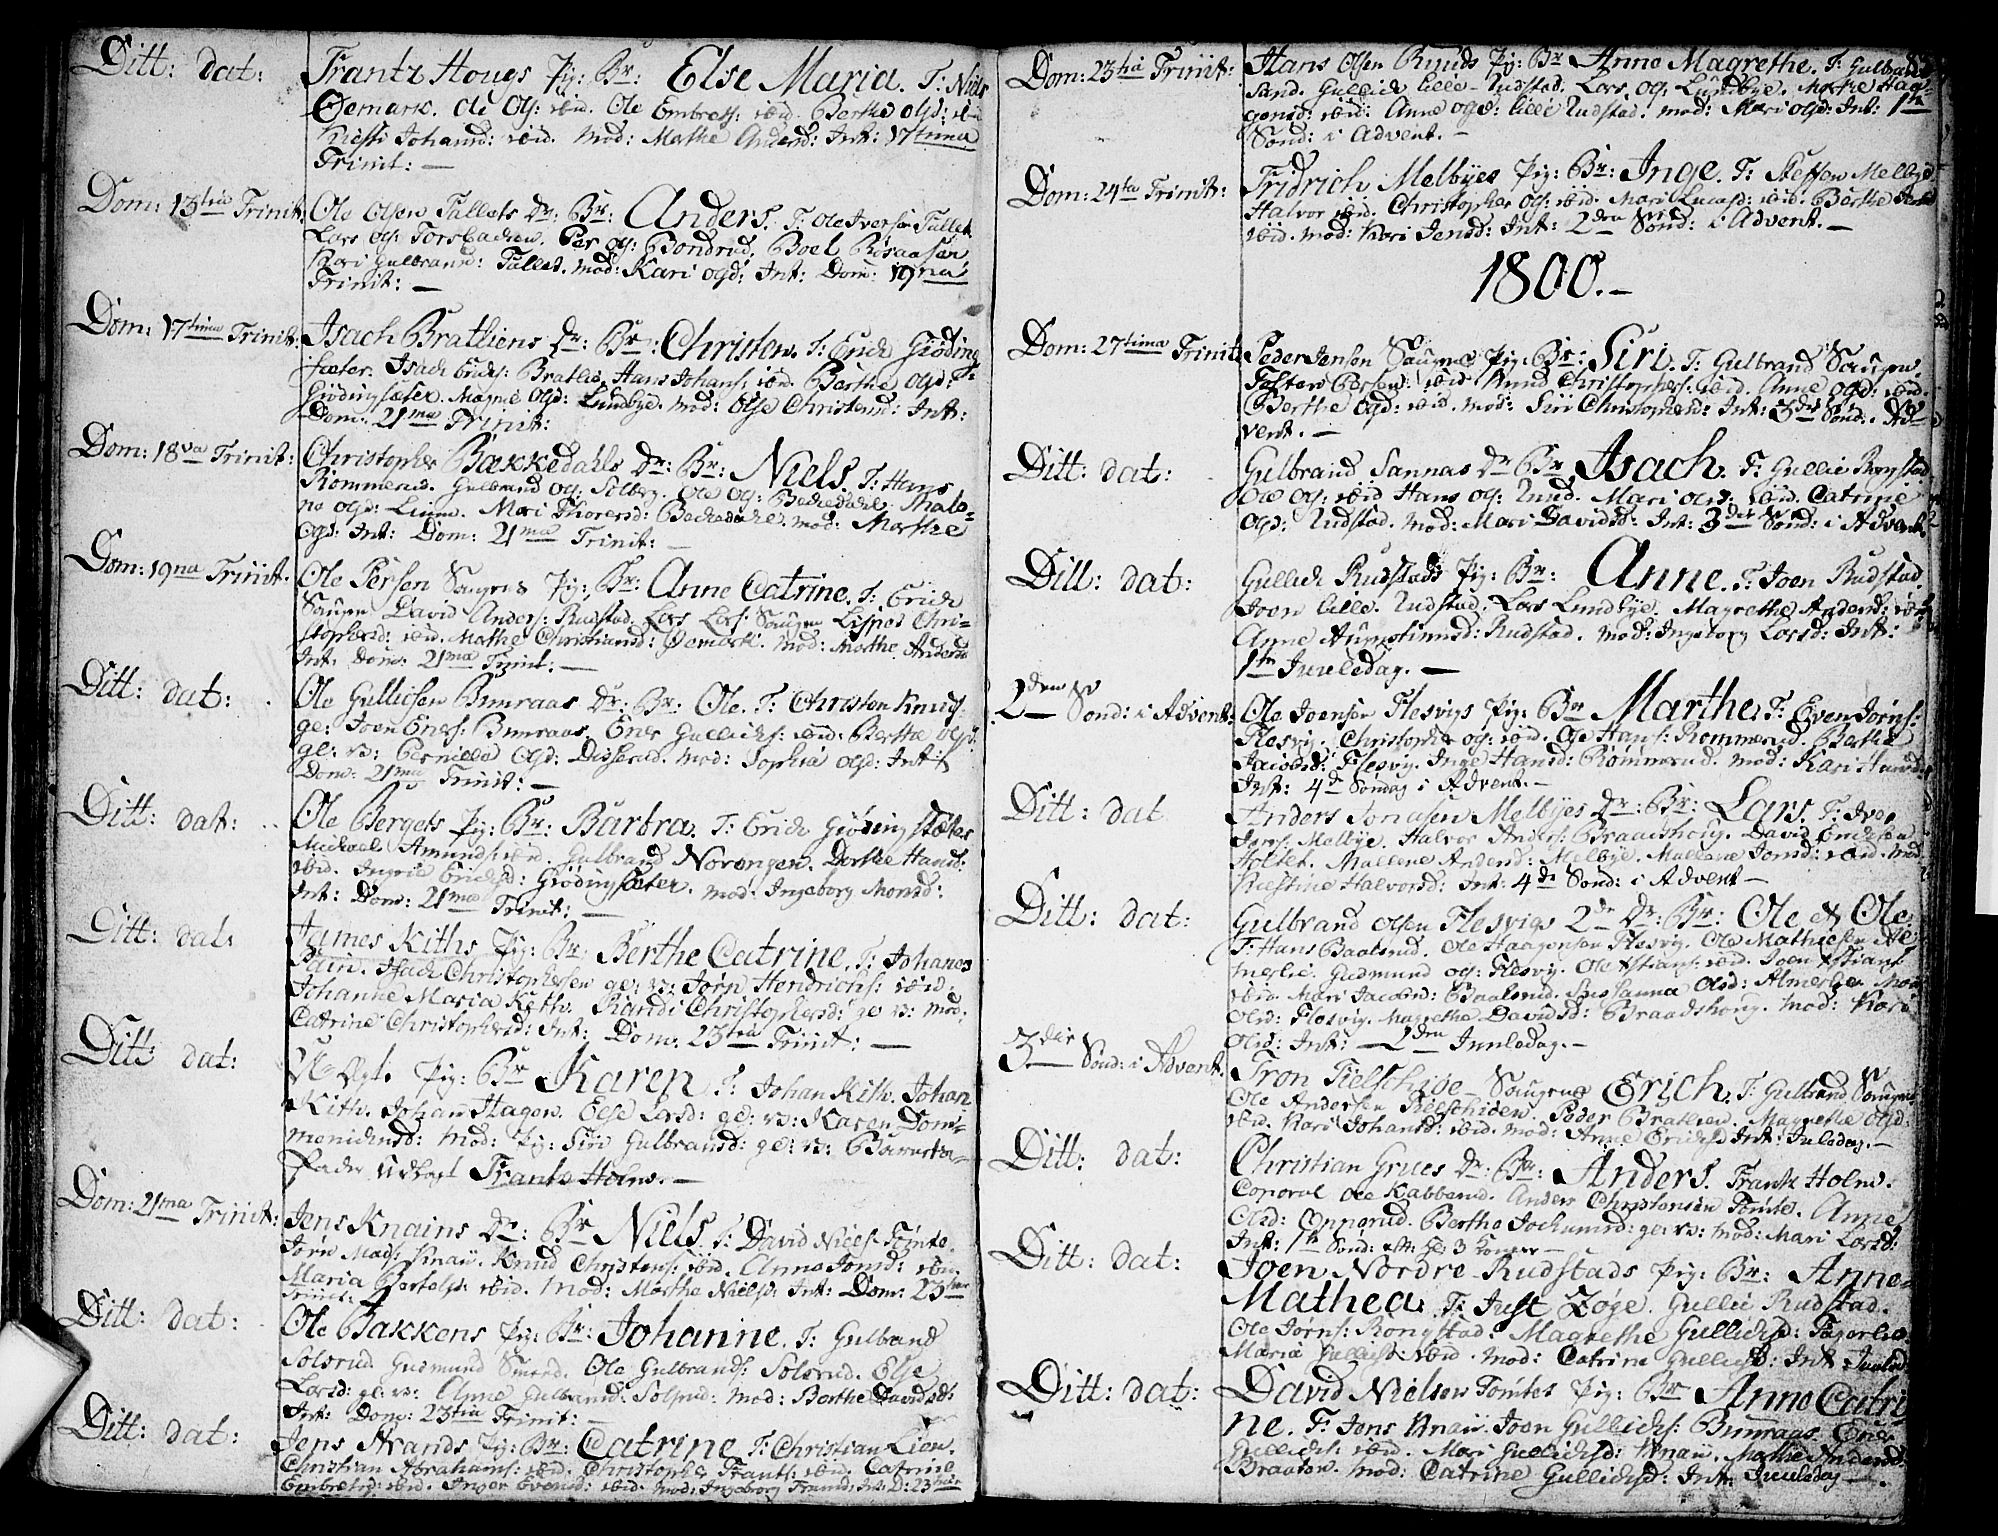 Ditt: dat: Frantz Hougs Pig: Br: Else Maria. T: Niels
Øemark. Ole Ols: ibid. Ole Embrets: ibid. Berthe Olsd: ibid
Kiesti Johansd: ibid. Mod: Marthe Andersd: Int: 17tima
Trinit: —
Dom: 13tia Trinit: Ole Olsen Tallets Dr: Br: Anders. T: Ole Iversen Tallet
Lars Ols: Torsbachen. Per Ols: Bondrud. Boel Risaasen
Kari Gulbrand: Tallet. Mod: Kari Ogd: Int: Dom: 19na
Trinit: —
Dom: 17tima Trinit: Isach Bratliens Dr: Br: Christen. T: Erich Giøding
sæter. Isach Erichs: Bratlie, Hans Johans: ibid. Berthe Olsd:
Giødingsæter. Magne Olsd: Lundbye. Mod: Olse Christensd: Int:
Dom: 21ma Trinit:
Dom: 18va Trinit: Christopher Bækkedahls Dr: Br: Niels. T: Hans
Rommerud. Gulbrand Ols: Solberg. Ole Ols: Beckedahl. Malo-
ne Olsd: Luum. Mari Thoresd: Beckedahl. Mod: Marthe
Ogd: Int: Dom: 21ma Trinit: —
Dom: 19na Trinit: Ole Persen Saugnes Pig: Br: Anne Catrine. T: Erich
Saugen David Anders: Rudstad. Lars Lars: Saugen Lisped Chri-
stophersd: ibid. Mathe Christiansd: Øemark. Mod: Marthe Andersd
Int: Dom: 21ma Trinit: —
Ditt: dat: Ole Gullicsen Bunraas Dr: Br: Ole. T: Christen Knuds
ge: Joen Eners: Bunraas. Ener Gullichs: ibid: Berthe Olsd:
ge: vd: Pernille Olsd: Disserud. Mod: Sophia Olsd: Int:
Dom: 21ma Trinit: —
Ditt: dat: Ole Bergets Pig: Br: Barbra. T: Erich Giødingsæter
Michael Amunds: ibid. Gulbrand Norengen. Dorthe Hansd:
ibid. Ingrie Erichsd: Giødingsæter. Mod: Ingeborg Monsd:
Int: Dom: 21ma Trinit: —
Ditt: dat: James Kiths Pig: Br: Berthe Catrine. T: Johanes
Pain. Isach Christophersen ge: vd: Jørn Hendrichs: ibid.
Johanne Maria Kith. Randi Christophersd: ge vd: Mod:
Catrine Christophersd: Int: Dom: 23tia Trinit: —
Ditt: dat: U-Ægt. Pig: Br: Karen T: Johan Kith. Johan
Kith. Johan Hagen. Else Larsd: ge: vd: Karen Domi-
menichsd: Mod: Pig: Siri Gulbransd: ge: vd: Barne-
Fader udlagt Frantz Holm. —
Dom: 21ma Trinit: Jens Knains Dr: Br: Niels. T: David Niels: Tømte.
Jørn Mads: Knain. Knud Christens: ibid. Anne Jonsd: ibid.
Maria Bertelsd: ibid. Mod: Marthe Nielsd: Int: Dom: 23tia
Trinit:
Ditt: dat: Ole Bakkens Pig: Br: Johanne. T: Gulbrand
Solsrud. Gudmund Smerud. Ole Gulbrands: Solsrud. Else
Larsd: ge: vd: Anne Gulbransd: Solsrud. Mod: Berthe Davidsd:
Int: Dom: 23tia Trinit: —
Ditt: dat: Jens Strands Pig: Br: Catrine T: Christian Lion.
Christian Abrahams: ibid. Christopher Frants: ibid. Catrine
Embretsd: ibid. Inger Evensd: ibid. Mod: Ingeborg Int: D: 23tia
Dom: 23tia Trinit: Hans Olsen Ruuds Pig: Br: Anne Magrethe. T: Gulbrand
Sand. Gullich Lille-Rudstad. Lars Ols: Lundbye. Marthe Haa-
gensd: ibid: Anne Olsd: Lille Rudstad. Mod: Mari Olsd: Int: 1te
Sønd: i Advent. —
Dom: 24ta Trinit: Fridrich Melbyes Pig: Br: Inge. T: Steffen Melbye
Halvor ibid. Christopher Ols: ibid. Mari Lucasd: ibid. Berthe
ibid. Mod: Kari Jensd: Int: 2den Sønd: i Advent. —
1800. —
Dom: 27tima Trinit: Peder Jensen Saugnes Pig: Br: Siri. T: Gulbrand Saugen.
Tosten Persen: ibid. Knud Christophers: ibid. Anne Olsd: ibid.
Berthe Ogd: ibid. Mod: Siri Christophersd: Int: 3die Sønd: Ad
vent. —
Ditt: dat: Gulbrand Sannas Dr: Br: Isach. T: Gullic Rogstad.
Ole Ols: ibid Hans Ols: Ruud. Mari Olsd: ibid. Catrine
Olsd: Rudstad. Mod: Mari Davidsd: Int: 3die Sønd: i Advent.
Ditt: dat: Gullich Rudstads Pig: Br: Anne. T: Joen Rudstad.
Joen Lille-Rudstad. Lars Lundbye. Magrethe Andersd: ibid
Anne Augustinusd: Rudstad. Mod: Ingeborg Larsd: Int:
1ten Juuledag. —
2den Sønd: i Advent: Ole Joensen Flesvigs Pig: Br: Marthe. T: Even Jørns:
Flesvig. Christopher Ols: ibid. Ole Hans: Rommerud. Berthe
Jacobsd: Flesvig. Inge Hansd: Rommerud. Mod: Kari Hansd:
Int: 4de Søndag i Advent. —
Ditt: dat Anders Jonasen Melbyes Dr: Br: Lars. T: Iver
Jons: Melbye. Halvor Anders: Braadshoug. David Erichsen
Holtet. Mallene Andersd: Melbye. Mallene Jonsd: ibid. Mod:
Kiestine Halvorsd: Int: 4de Sønd: i Advent —
Ditt: dat: Gulbrand Olsen Flesvigs 2de Dr: Br: Ole & Ole:
T: Hans Baalsrud. Ole Haagensen Flesvig. Ole Mathiesen Al-
merlie. Gudmund Ols: Flesvig. Ole Xstians: ibid. Joen Xstians
ibid. Mari Jacobsd: Baalsrud. Susanna Olsd: Almerlie. Mari
Olsd: Flesvig. Magrethe Davidsd: Braadshoug. Mod: Kari
Olsd: Int: — 2den Juuledag. —
3die Sønd: i Advent. Tron Fielschiøe Saugnes Erich. T: Gulbrand Saugen
Ole Andersen Fielschiøen. Peder Bratlien. Magrethe Olsd:
ibid. Kari Johansd: ibid. Mod: Anne Erichsd Int: Juledag. —
Ditt: dat: Christian Grues Dr: Br: Anders. Frantz Holm.
Coporal Ole Kabberud. Anders Christensen Tømte. Anne
Olsd: Oppgrud. Berthe Jochumsd: ge: vd: Mod: Mari Larsd:
Int: 1te Sønd: eft: H: 3 Konger —
Ditt: dat: Joen Nordre-Rudstads Pig: Br: Anne
Mathea. T: Just Zøge. Gullic Rudstad.
Ole Jørns: Rongstad: Magrethe Gullichsd: Fagerlie
Maria Gullichsd: ibid. Mod: Catrine Gullichsd: Int: Juuled
Ditt: dat: David Nielsen Tomtes Pig: Br: Anne Catri
ne. T: Jens Knain. Joen Gullichs: Bunraas. Ener
Gullichs: ibid. Mari Gullichsd: Knain. Mathe Andersd:
Braaten. Mod: Catrine Gullichsd: Int: Juuledag —